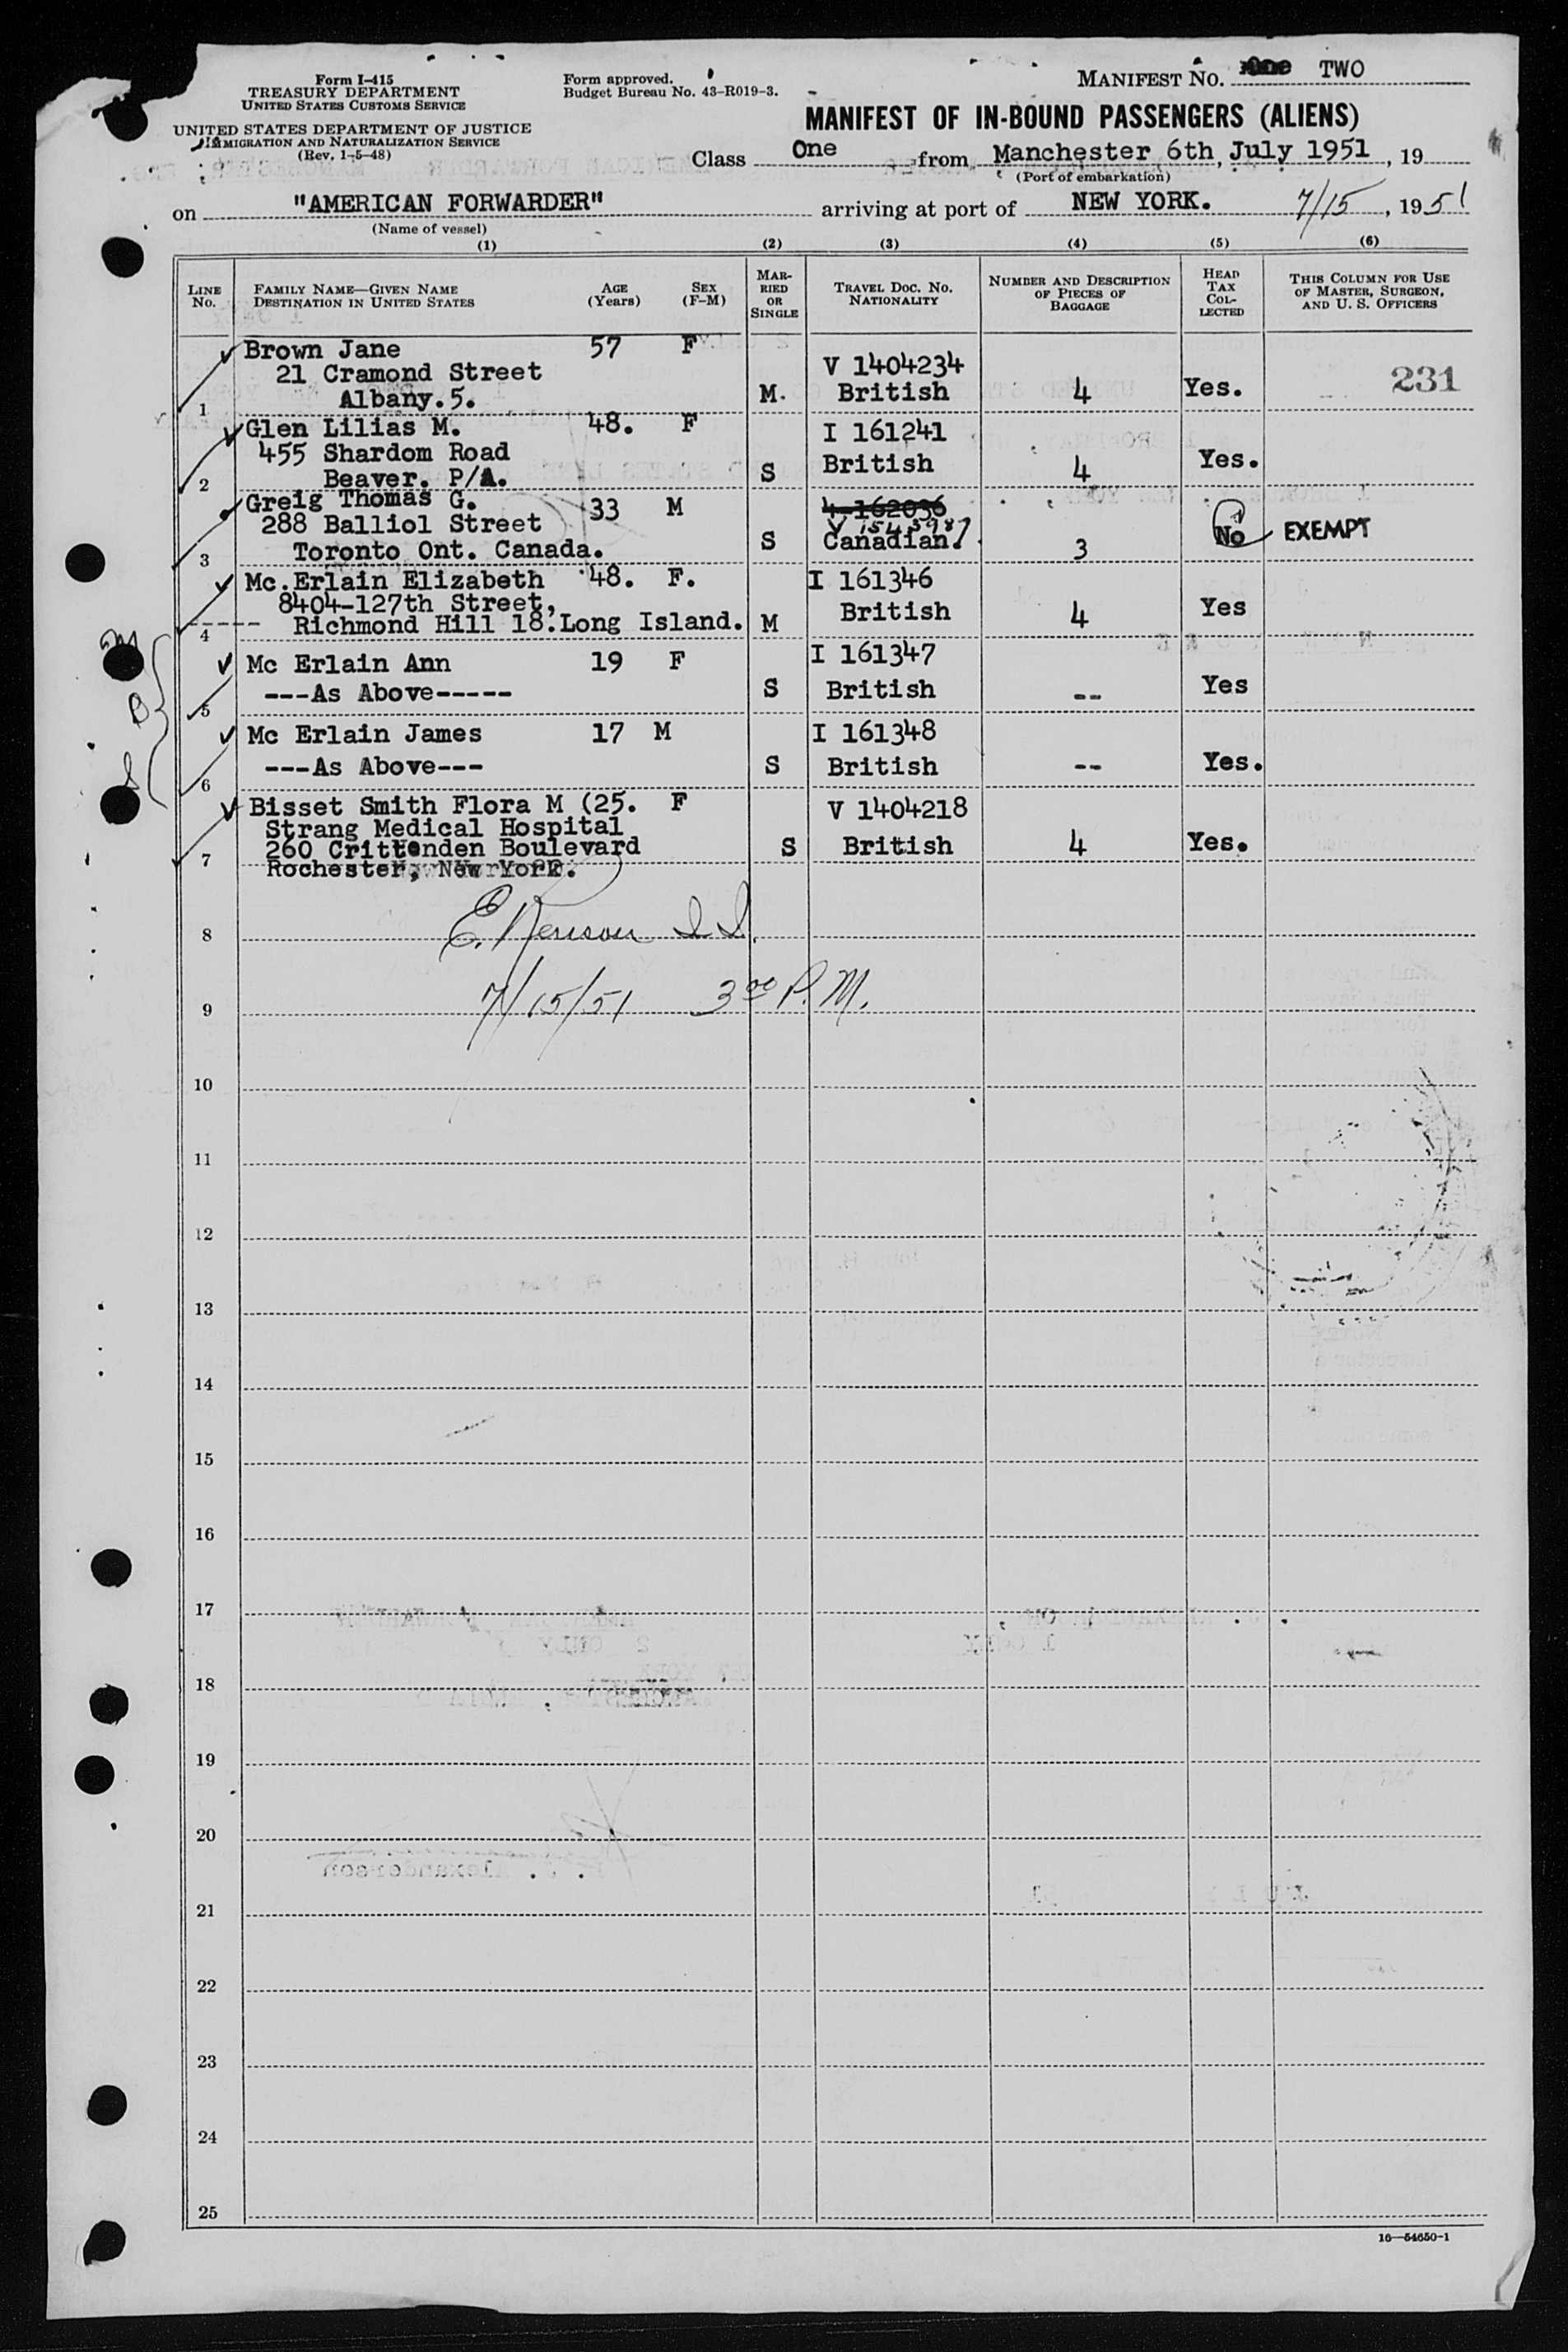 Form I-415
TREASURY DEPARTMENT
UNITED STATES CUSTOMS SERVICE
UNITED STATES DEPARTMENT OF JUSTICE
IMMIGRATION AND NATURALIZATION SERVICE
(Rev. 1-5-48)
Form approved.
Budget Bureau No. 43-R019-3.
MANIFEST NO. One TWO
MANIFEST OF IN-BOUND PASSENGERS (ALIENS)
Class One from Manchester 6th, July 1951, 19
(Port of embarkation)
on "AMERICAN FORWARDER" arriving at port of NEW YORK. 7/15, 1951
(Name of vessel)
(1) (2) (3) (4) (5) (6)
LINE NO. FAMILY NAME—GIVEN NAME DESTINATION IN UNITED STATES AGE (Years) SEX (F-M) MARRIED OR SINGLE TRAVEL DOC. NO. NATIONALITY NUMBER AND DESCRIPTION OF PIECES OF BAGGAGE HEAD TAX COLLECTED THIS COLUMN FOR USE OF MASTER, SURGEON, AND U. S. OFFICERS
Brown Jane 57 F V 1404234
21 Cramond Street 231
1 Albany.5. M. British 4 Yes.
Glen Lilias M. 48. F I 161241
455 Shardom Road British Yes.
2 Beaver. P/A. S 4
Greig Thomas G. 33 M 4-162036
288 Balliol Street V 1545987 No EXEMPT
3 Toronto Ont. Canada. S Canadian. 3
Mc.Erlain Elizabeth 48. F. I 161346
8404-127th Street, British Yes
4 Richmond Hill 18.Long Island. M 4
Mc Erlain Ann 19 F I 161347
5 ---As Above----- S British -- Yes
B
Mc Erlain James 17 M I 161348
6 ---As Above--- S British -- Yes.
Bisset Smith Flora M (25. F V 1404218
Strang Medical Hospital
7 260 Crittenden Boulevard S British 4 Yes.
Rochester, New York.
8
7/15/51 3 00 P.M.
9
10
11
12
13
14
15
16
17
18
19
20
21
22
23
24
25
16—54650-1